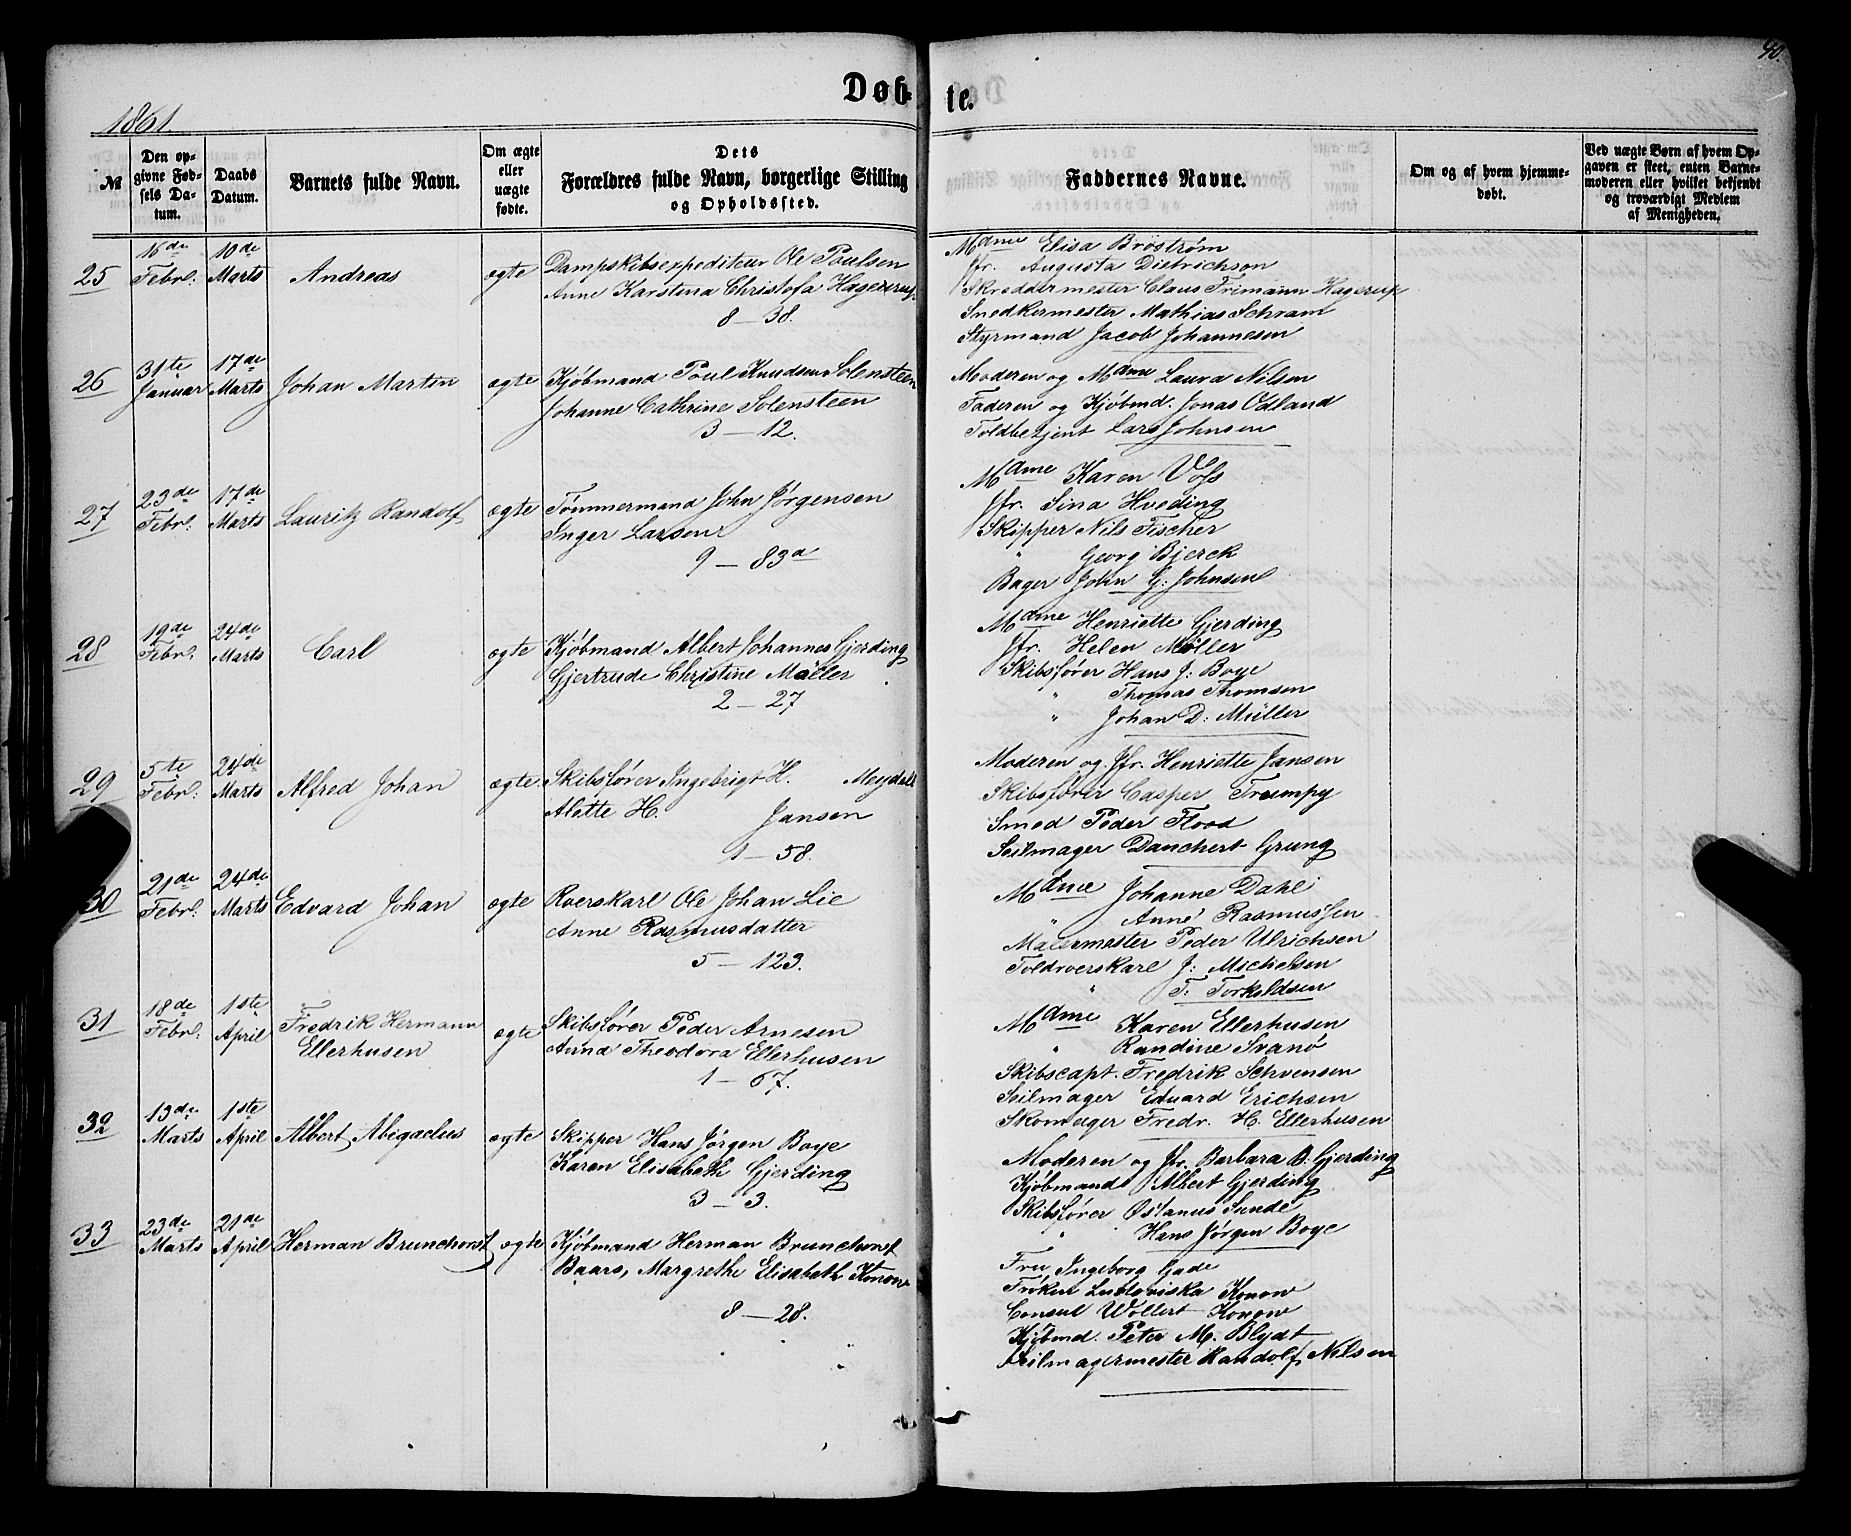 40.
Døb-
te.
1861.
№
Den op-
givne Fød-
sels Da-
tum.
Daabs
Datum.
Barnets fulde Navn.
Om ægte
eller
uægte
fødte.
Dets
Forældres fulde Navn, borgerlige Stilling
og Opholdssted.
Faddernes Navne.
Om og af hvem hjemme-
døbt.
Ved uægte Børn af hvem Op-
gaven er skeet, enten Barne-
moderen eller hvilket bekjendt
og troværdigt Medlem
af Menigheden.
25
16de
Febrl.
10de
Marts
Andreas
ægte
Dampskibsexpediteur Ole Poulsen
Anne Karstina Christofa Hagerup
8 — 38.
Mdme Elisa Brøstrøm
Jfr. Augusta Dietrichson
Skreddermester Claus Frimann Hagerup
Snedkermester Mathias Schram
Styrmand Jacob Johannesen
26
31te
Januar
17de
Marts
Johan Martin
ægte
Kjøbmand Poul Knudsen Solensteen
Johanne Cathrine Solensteen
3 — 12.
Moderen og Mdme Laura Nilsen
Faderen og Kjøbmd. Jonas Odland
Toldbetjent Lars Johnsen
27
23de
Febrl.
17de
Marts
Lauritz Randolf
ægte
Tømmermand John Jørgensen
Inger Larsen
9 — 83a
Mdme Karen Voss
Jfr. Sina Hveding
Skipper Nils Fischer
" Georg Bjerck
Bager John G: Johnsen
28
19de
Febrl.
24de
Marts
Carl
ægte
Kjøbmand Albert Johannes Gjerding
Gjertrude Christine Møller
2 — 27
Mdme Henriette Gjerding
Jfr. Helen Møller
Skibsfører Hans J: Boye
" Thomas Thomsen
" Johan D: Müller
29
5te
Febrl:
24de
Marts
Alfred Johan
ægte
Skibsfører Ingebrigt H. Meydell
Alette H. Jansen
1 — 58.
Moderen og Jfr. Henriette Jansen
Skibsfører Casper Trumpy
Smed Peder Flood
Seilmager Danchert Grung
30
21de
Febrl.
24de
Marts
Edvard Johan
ægte
Roerskarl Ole Johan Lie
Anne Rasmusdatter
5 — 123.
Mdme Johanne Dahl
" Anne Rasmussen
Malermester Peder Ulrichsen
Toldroerskarl J: Michelsen
" T: Torkeldsen
31
18de
Febrl:
1ste
April
Fredrik Hermann
Ellerhusen
ægte
Skibsfører Peder Arnesen
Anna Theodora Ellerhusen
1 — 67.
Mdme Karen Ellerhusen
" Randine Svanø
Skibscapt. Fredrik Schvensen
Seilmager Eduard Erichsen
Skomager Fredr. H. Ellerhusen
32
13de
Marts
1ste
April
Albert Abigaelus
ægte
Skipper Hans Jørgen Boye
Karen Elisabeth Gjerding
3 — 3.
Moderen og Jfr. Barbara B: Gjerding
Kjøbmand Albert Gjerding
Skibsfører Østanus Sunde
" Hans Jørgen Boye
33
23de
Marts
21de
April
Herman Brunchorst
ægte
Kjøbmand Herman Brunchorst
Baars, Margrethe Elisabeth Konow
8 — 28.
Fru Ingeborg Gade
Frøken Ludoviska Konow
Consul Wollert Konow
Kjøbmd. Peter M. Blydt
Seilmagermester Randolf Nilsen